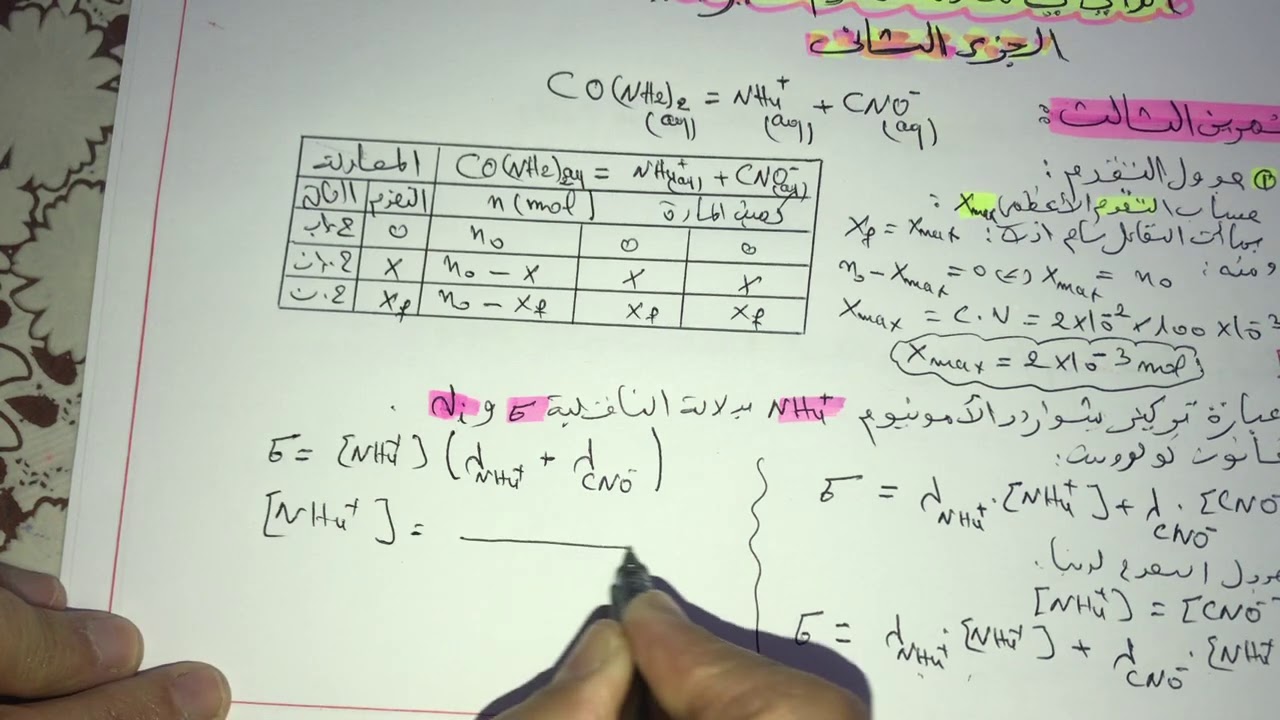 الجزء الثاني
CO(NH2)2 (aq) = NH4+ (aq) + CNO- (aq)
تمرين الثالث:
① جدول التقدم:
المعادلة CO(NH2)2aq = NH4+(aq) + CNO-(aq)
الحالة التقدم n(mol) كمية المادة
0 n0 0 0
X n0 - X X X
Xf n0 - Xf Xf Xf
حساب التقدم الأعظمي Xmax:
بمأن التفاعل تام اذن: Xf = Xmax
ومنه: n0 - Xmax = 0 => Xmax = n0
Xmax = C.V = 2×10-2 × 100 ×10-3
Xmax = 2×10-3 mol
عبارة تركيز شوارد الأمونيوم NH4+ بدلالة الناقلية σ و λi.
σ = λNH4+ . [NH4+] + λCNO- . [CNO
[NH4+] = [CNO-
σ = λNH4+ . [NH4+] + λCNO- . [NH4
σ = [NH4+] (λNH4+ + λCNO-)
[NH4+] =